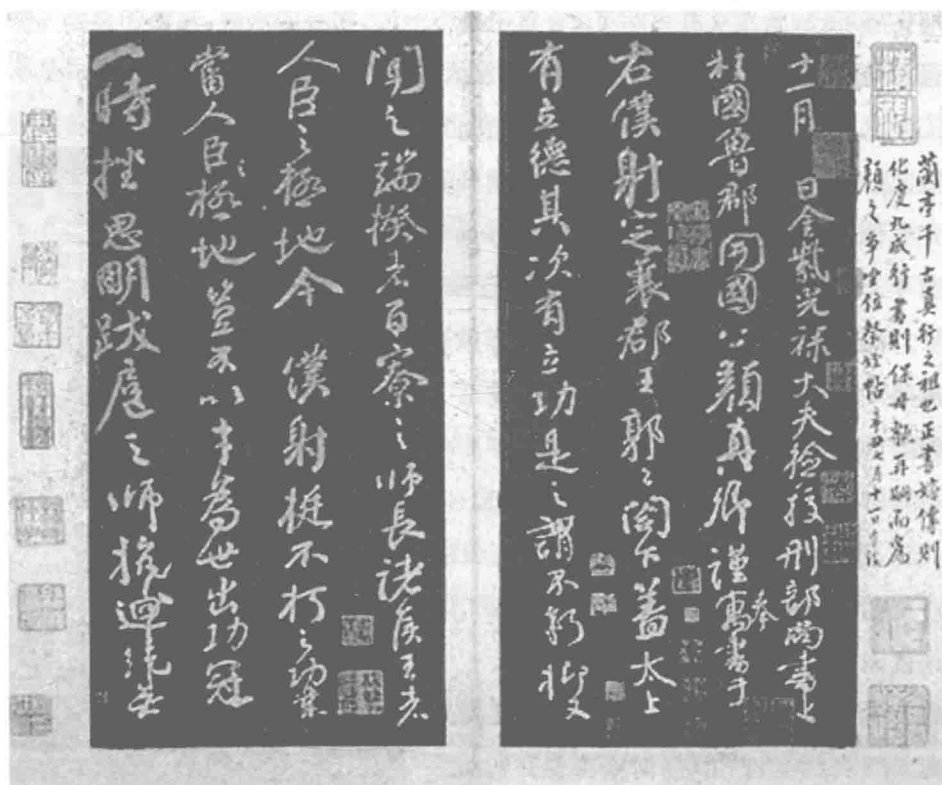 蘭亭千古真行之祖也正書嫡傳則
化度九成行書則保母再嗣而為
顏之爭坐位祭姪帖辛丑七月十一日
十一月 日金紫光祿大夫檢挍刑部尚書上
柱國魯郡開國公顏真卿謹奉寓書于
右僕射定襄郡王郭公閤下蓋太上
有立德其次有立功是之謂不朽抑又
聞之端揆者百寮之師長諸侯王者
人臣之極地今 僕射挺不朽之功業
當人臣之極地豈不以才為世出功冠
一時挫思明跋扈之師抗迴紇無